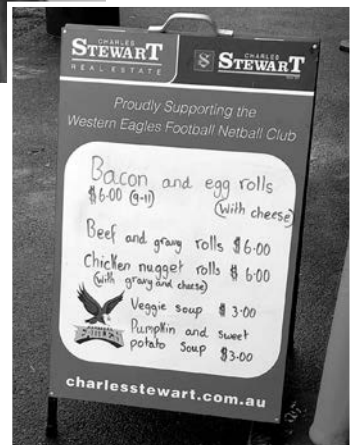 CHARLES
STEWART
REAL ESTATE
CHARLES
STEWART
Proudly Supporting the
Western Eagles Football Netball Club
Bacon and egg rolls
$6.00 (9-11) (with cheese)
Beef and gravy rolls $6.00
Chicken nugget rolls $ 6.00
(with gravy and cheese)
Veggie soup $ 3.00
Pumpkin and sweet
potato soup $3.00
EAGLES
charlesstewart.com.au